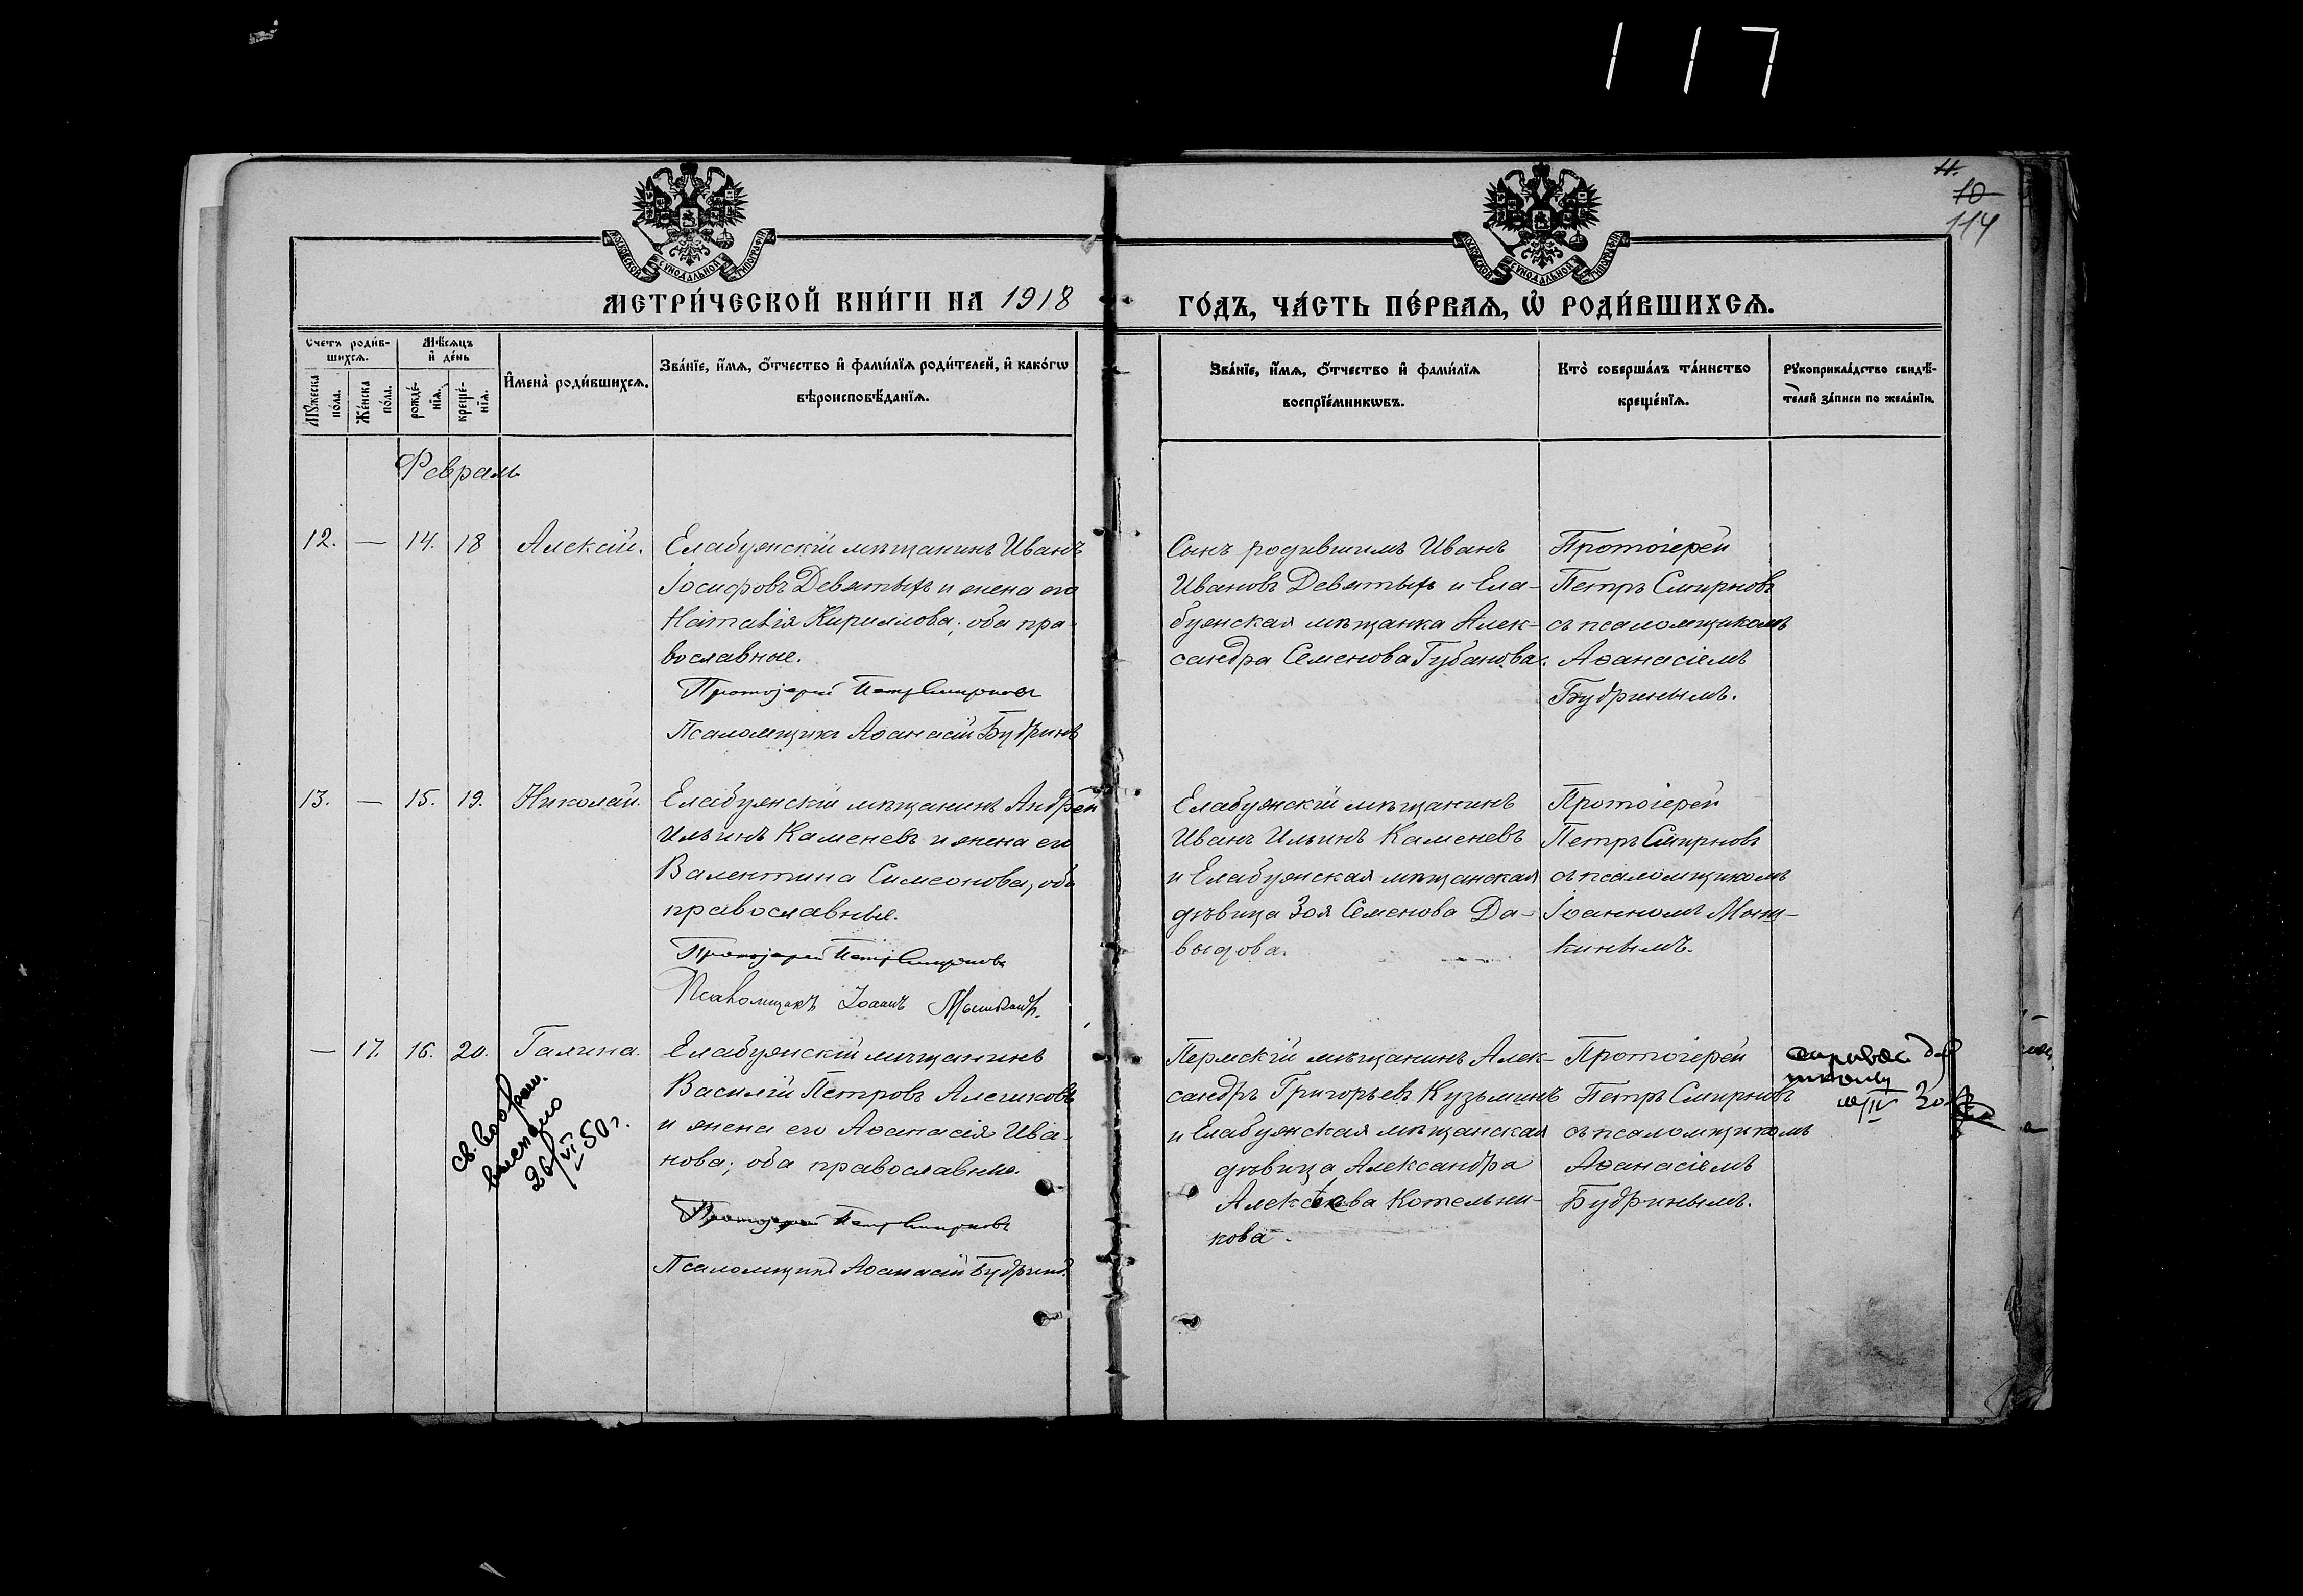 117
11.
10
114
МОСКОВСКОЙ СѴНОДАЛЬНОЙ ТИПОГРАФІИ
МОСКОВСКОЙ СѴНОДАЛЬНОЙ ТИПОГРАФІИ
МЕТРИ́ЧЕСКОЙ КНИ́ГИ НА 1918
ГО́ДЪ, ЧА́СТЬ ПЕ́РВАѦ, Ѡ҆ РОДИ́ВШИХСѦ.
Счетъ роди́в-
шихсѧ.
Мꙋжеска
по́ла.
Же́нска
по́ла.
Мѣ́сѧцъ
и҆ де́нь
рожде́-
нїѧ.
креще́-
нїѧ.
И҆мена̀ роди́вшихсѧ.
Зва́нїе, и҆́мѧ, ѻ҆́тчество и҆ фами́лїѧ роди́телей, и҆ како́гѡ
вѣроисповѣ́данїѧ.
Зва́нїе, и҆́мѧ, ѻ҆́тчество и҆ фами́лїѧ
воспрїе́мникѡвъ.
Кто̀ соверша́лъ та́инство
креще́нїѧ.
Рꙋкоприкла́дство свидѣ́-
телей за́писи по жела́нїю.
Февраль
12. — 14. 18 Алексій.
Елабужскій мѣщанинъ Иванъ
Іосифовъ Девятыхъ и жена его
Наталія Кириллова; оба пра-
вославные.
Протоіерей Петръ Смирновъ
Псаломщикъ Аѳанасій Будринъ
Сынъ родившимъ Иванъ
Ивановъ Девятыхъ и Ела-
бужская мѣщанка Алек-
сандра Семенова Губанова.
Протоіерей
Петръ Смирновъ
съ псаломщикомъ
Аѳанасіемъ
Будринымъ.
13. — 15. 19. Николай.
Елабужскій мѣщанинъ Андрей
Ильинъ Каменевъ и жена его
Валентина Симеонова, оба
православные.
Протоіерей Петръ Смирновъ
Псаломщикъ Іоаннъ Мышкинъ.
Елабужскій мѣщанинъ
Иванъ Ильинъ Каменевъ
и Елабужская мѣщанская
дѣвица Зоя Семенова Да-
выдова.
Протоіерей
Петръ Смирновъ
съ псаломщикомъ
Іоанномъ Мыш-
кинымъ.
— 17. 16. 20. Галина.
св.
выслано
26/VI-50 г.
Елабужскій мѣщанинъ
Василій Петровъ
и жена его Аѳанасія Ива-
нова; оба православные.
Протоіерей Петръ Смирновъ
Псаломщикъ Аѳанасій Будринъ.
Пермскій мѣщанинъ Алек-
сандръ Григорьевъ Кузьминъ
и Елабужская мѣщанская
дѣвица Александра
Алексѣева Котельни-
кова.
Протоіерей
Петръ Смирновъ
съ псаломщикомъ
Аѳанасіемъ
Будринымъ.